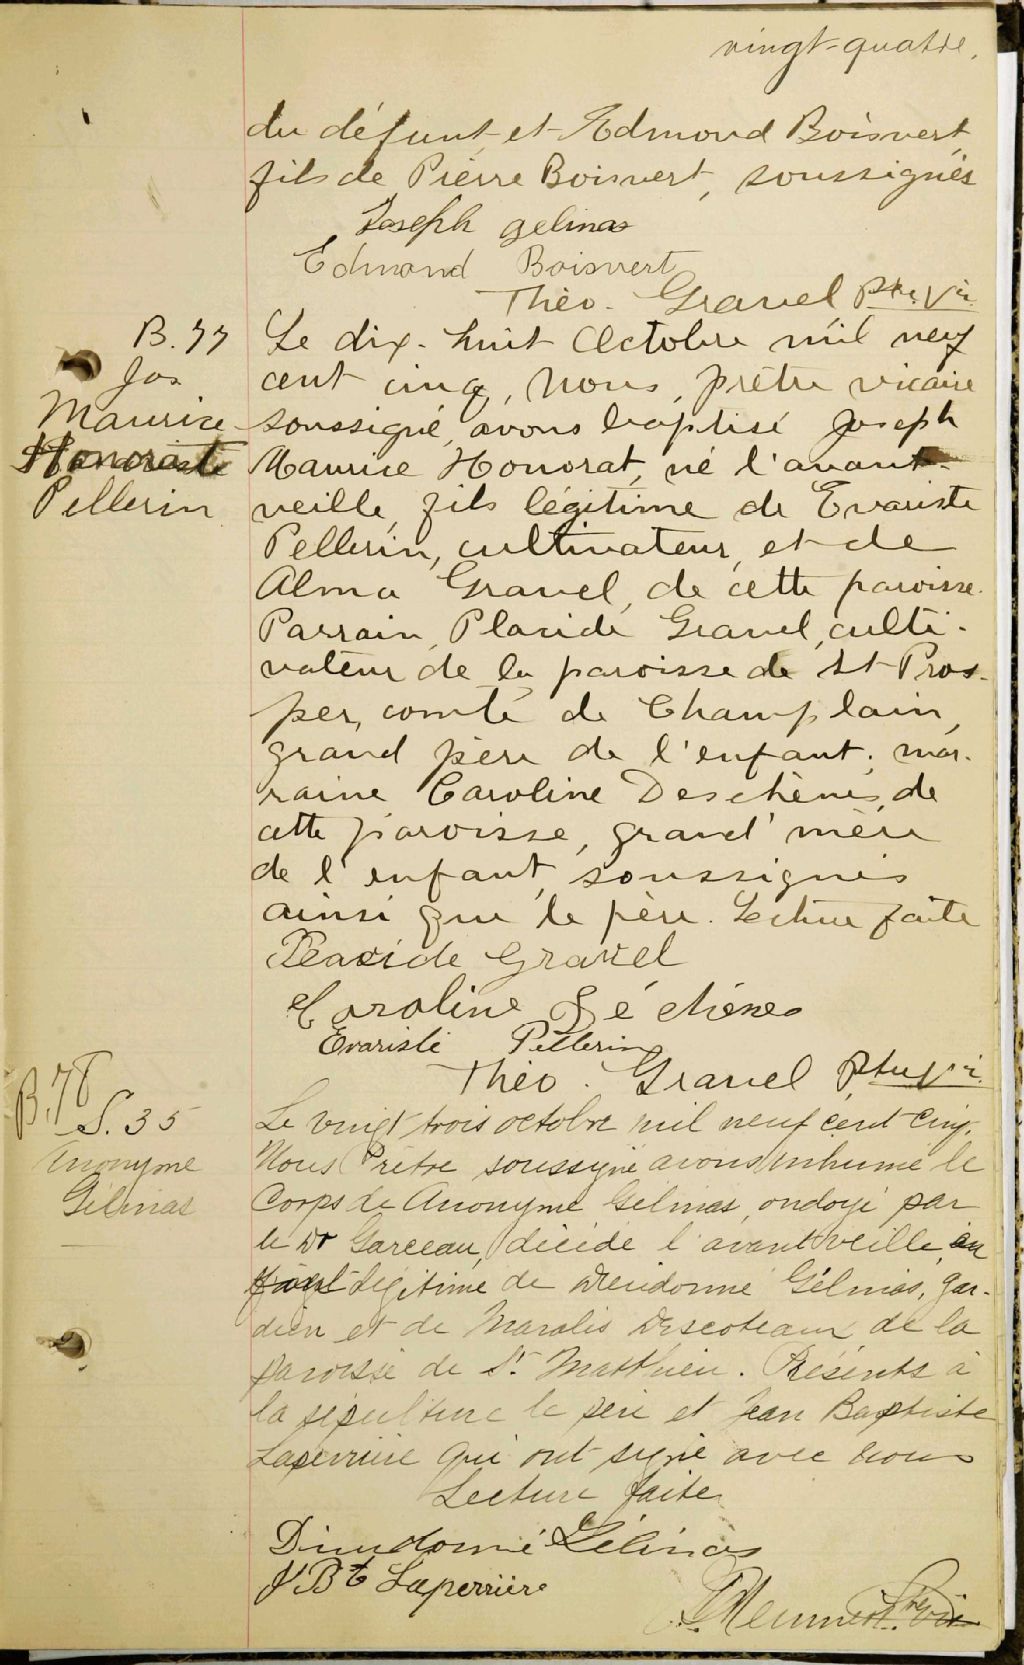 vingt-quatre.
du défunt, et Edmond Boisvert,
fils de Pierre Boisvert, soussignés
Joseph Gelinas
Edmond Boisvert
Théo. Gravel Ptre Vic.
B. 77
Jos
Maurice
Honorat
Pellerin
Le dix-huit Octobre mil neuf
cent cinq, nous, prêtre vicaire
soussigné, avons baptisé Joseph
Maurice Honorat, né l'avant-
veille, fils légitime de Evariste
Pellerin, cultivateur, et de
Alma Gravel, de cette paroisse.
Parrain, Placide Gravel, culti-
vateur de la paroisse de St Pros-
per, comté de Champlain,
grand père de l'enfant; mar-
raine Caroline Deschènes, de
cette paroisse, grand' mère
de l'enfant, soussignés
ainsi que le père. Lecture faite
Placide Gravel
Caroline Dé chènes
Evariste Pellerin
Théo. Gravel Ptre Vic.
B. 78
S. 35
Anonyme
Gélinas
Le vingt trois octobre mil neuf cent cinq.
Nous Prêtre soussigné avons inhumé le
Corps de Anonyme Gélinas, ondoyé par
le Dr Garceau, décédé l'avant veille,
légitime de Dieudonné Gélinas, gar-
dien et de Maralis Descoteaux de la
paroisse de St. Matthieu. Présents à
la sépulture le père et Jean Baptiste
Laperrière qui ont signé avec nous
Lecture faite
Dieudonné Gélinas
J Bte Laperrière
Ptre Vic